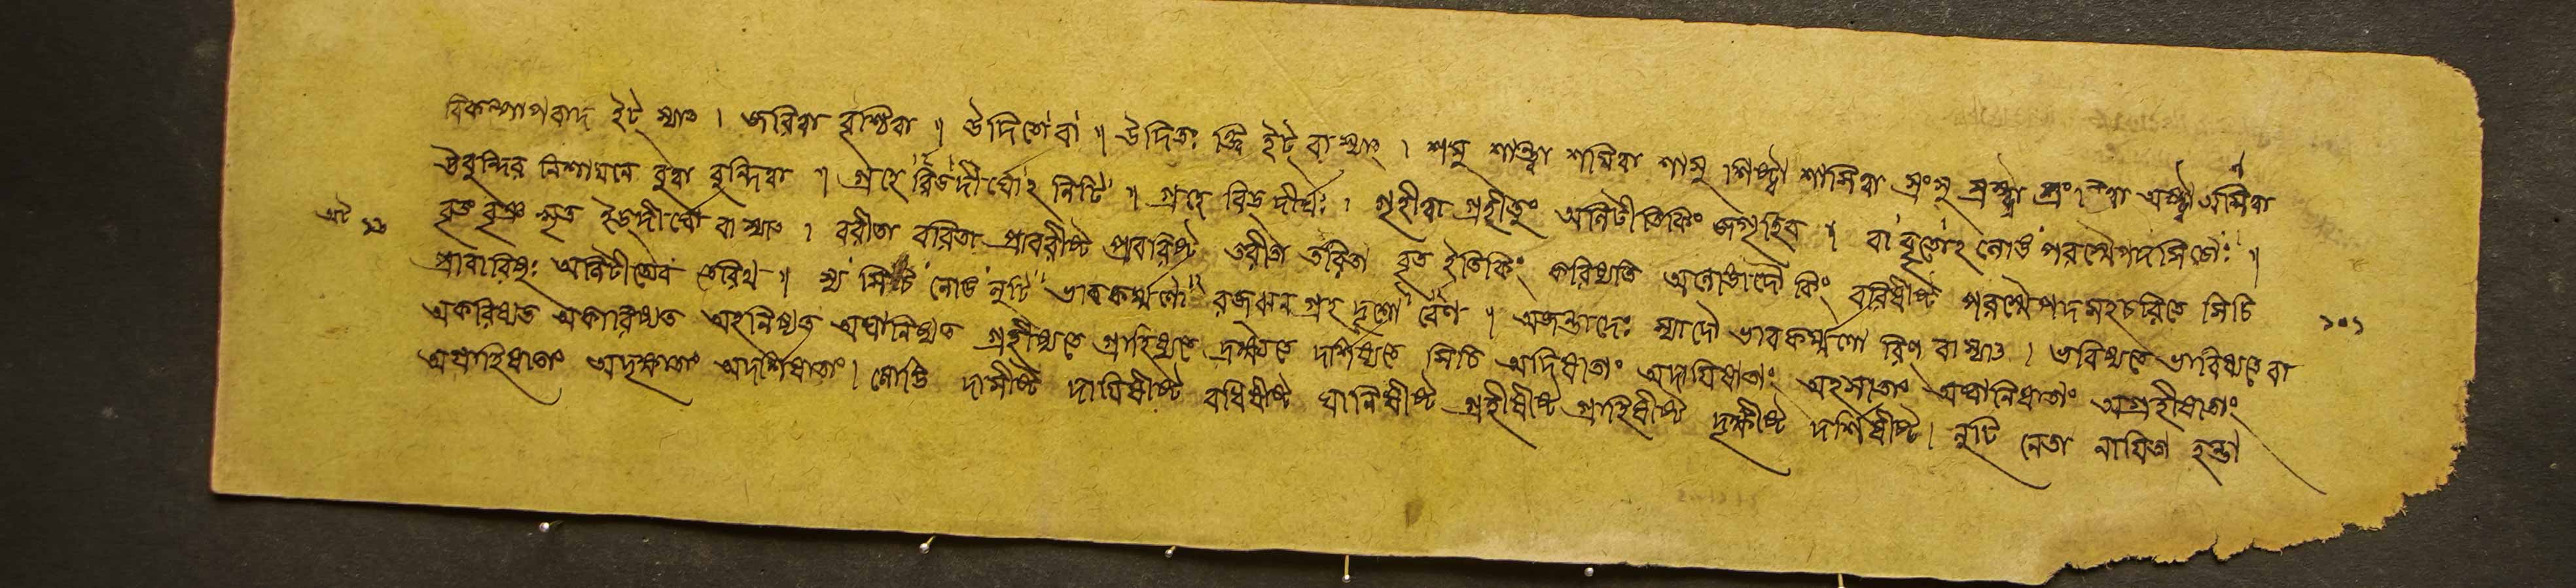 বিকল্পাপবাদ ইট্ স্যাৎ । জরিত্বা বৃশ্চিত্বা ॥ উদিতো বা ॥ উদিতঃ ক্ত্বি ইট্ বা স্যাৎ । শমু শান্ত্বা শমিত্বা শাসু শিষ্ট্বা শাসিত্বা
উবুন্দির নিশামনে বুত্বা বুন্দিত্বা ॥ গ্রহেরিডদীর্ঘোঽলিটি ॥ গ্রহে রিড্ দীর্ঘঃ । গৃহীত্বা গ্রহীতুং অলিটীতিকিং জগৃহিব ॥ বা বৃতোঽলোঙ পরস্মৈপদসিচোঃ ॥
বৃঙ বৃঞ ৠত ইড্ দীর্ঘো বা স্যাৎ । বরীতা বরিতা প্রাবরীষ্ট প্রাবরিষ্ট তরীতা তরিতা বৃত ইতিকিং করিষ্যতি অলোঙাদৌ কিং বরিষীষ্ট পরস্মৈপদসহচরিতে সিচি
প্রাবারিষুঃ অলিটীত্যেব তেরিথ ॥ স্য সিচি লোঙ লুটি ভাবকর্ম্মণো রজঝন গ্রহ দৃশো র্বেণ্ ॥ অজন্তাদেঃ স্যাদৌ ভাবকর্ম্মণো রিণ্ বা স্যাৎ । ভবিষ্যতে ভাবিষ্যতে বা
অকরিষ্যত অকারিষ্যত অহনিষ্যত অঘানিষ্যত গ্রহীষ্যতে গ্রাহিষ্যতে দ্রক্ষ্যতে দর্শিষ্যতে সিচি অদিষাতাং অদায়িষাতাং অহসাতাং অঘানিষাতাং অগ্রহীষাতাং
অগ্রাহিষাতাং অদৃক্ষাতাং অদর্শিষাতাং । লোঙি দাসীষ্ট দায়িষীষ্ট বধিষীষ্ট ঘানিষীষ্ট গ্রহীষীষ্ট গ্রাহিষীষ্ট দৃক্ষীষ্ট দর্শিষীষ্ট । লুটি নেতা নায়িতা হন্তা
১০১